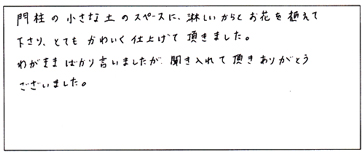 門柱の小さな土のスペースに、淋しいからとお花を植えて
下さり、とても かわいく 仕上げて 頂きました。
わがままばかり言いましたが、聞き入れて頂きありがとう
ございました。